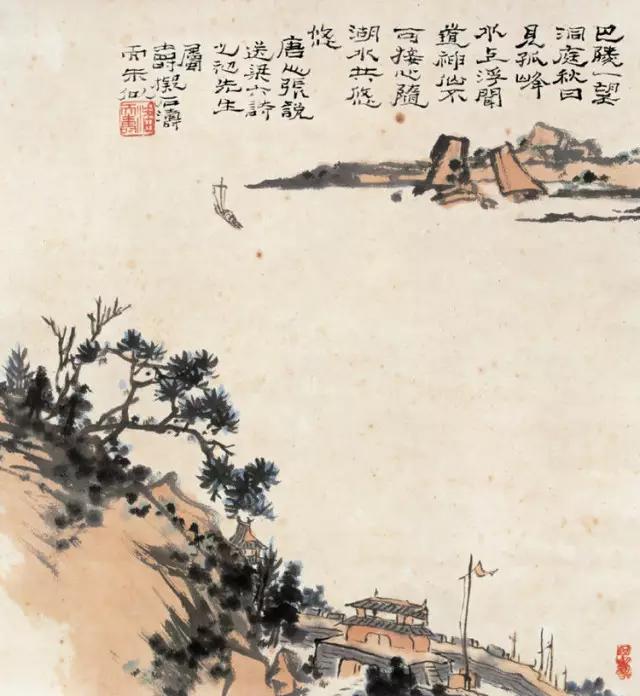 巴陵一望
洞庭秋日
見孤峰
水上浮聞
道神仙不
可接心隨
湖水共悠
悠
唐張說
送梁六詩
初先生
屬
壽石濤